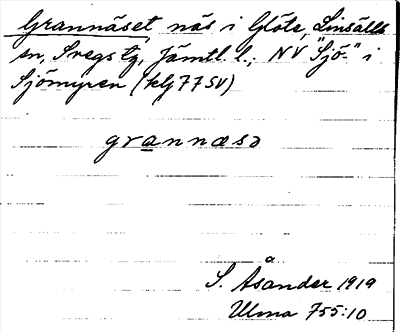 Grannäset näs i Glöte, Linsälls
sn, Svegs tg, Jämtl. l.; NV "Sjö-" i
Sjömyren (klj 77 SV)
grannæsə
S. Åsander 1919
Ulma 755:10